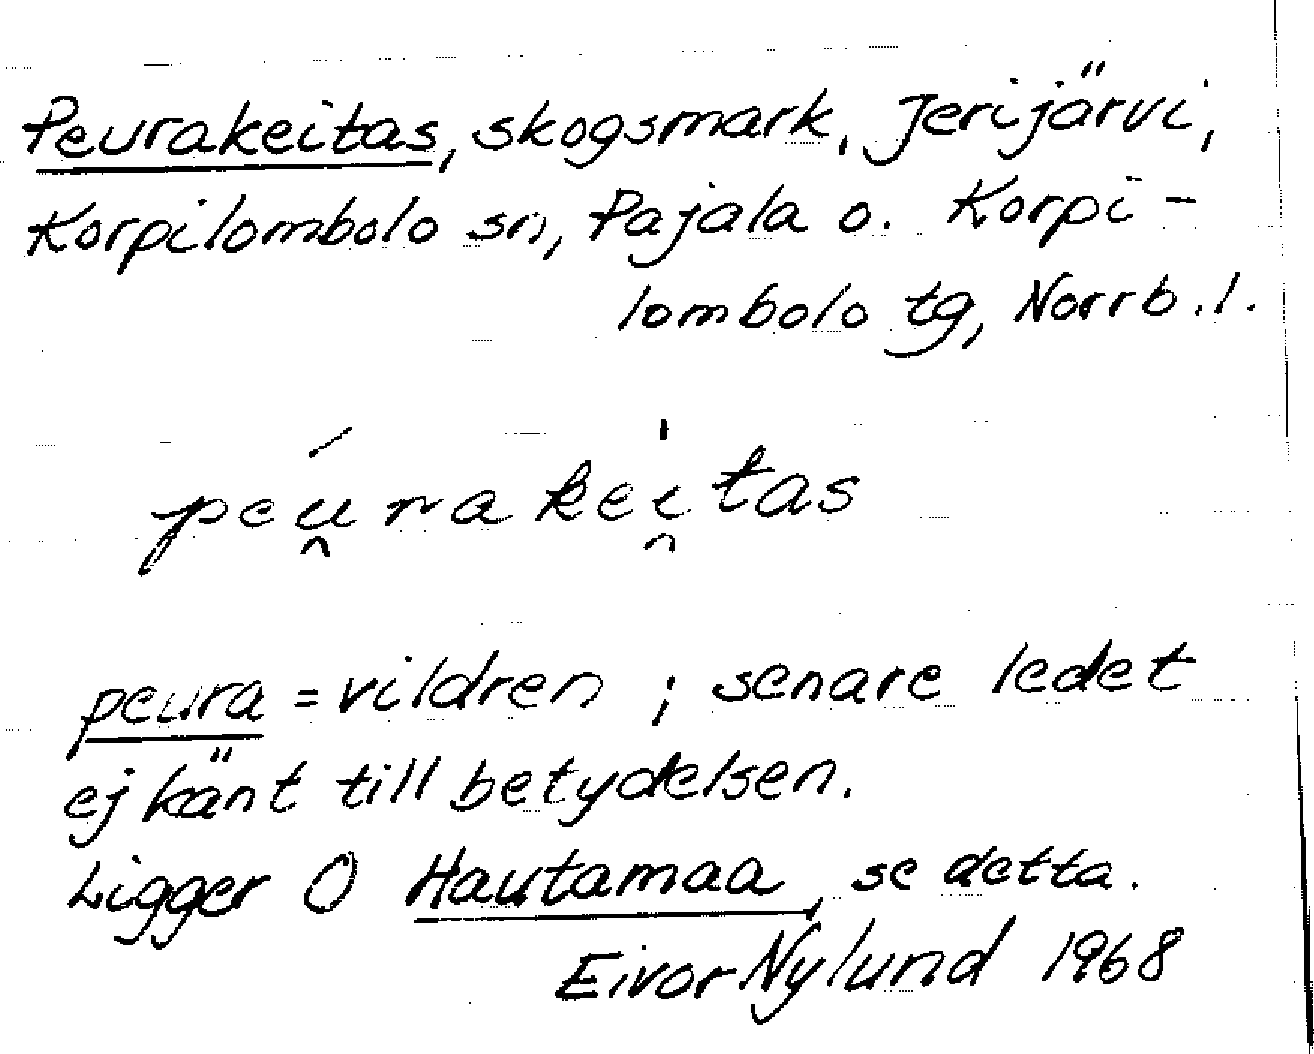 Peurakeitas, skogsmark, Jerijärvi,
Korpilombolo sn, Pajala o. Korpi-
lombolo tg, Norrb.l.
peú̯rakei̯̍tas
peura = vildren ; senare ledet
ej känt till betydelsen.
Ligger O Hautamaa, se detta.
Eivor Nylund 1968